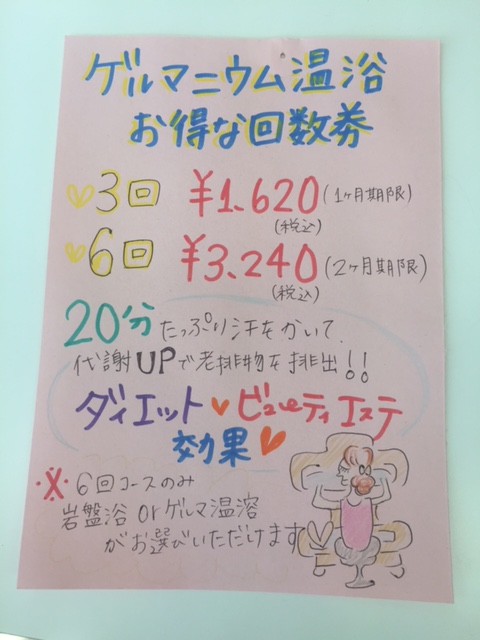 ゲルマニウム温浴
お得な回数券
3回 ¥1.620(1ヶ月期限)
(税込)
6回 ¥3.240(2ヶ月期限)
(税込)
20分たっぷり汗をかいて、
代謝UPで老排物を排出!!
ダイエット♥ビューティエステ
効果♥
※6回コースのみ
岩盤浴orゲルマ温溶
がお選びいただけます